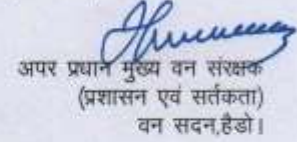 अपर प्रधान मुख्य वन संरक्षक
(प्रशासन एवं सर्तकता)
वन सदन,हैडो।